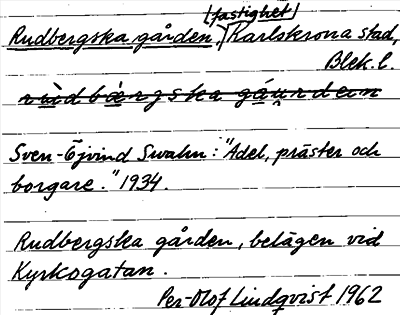 [fastighet]
Rudbergska gården, Karlskrona stad,
Blek. l.
Sven-Öjvind Swahn: "Adel, präster och
borgare." 1934.
Rudbergska gården, belägen vid
Kyrkogatan.
Per-Olof Lindqvist 1962